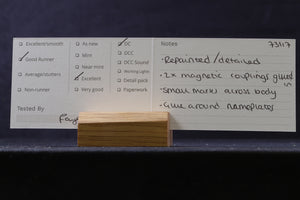 Excellent/smooth
Good Runner
Average/stutters
Non-runner
Tested By
As new
Mint
Near mint
Excellent
Very good
DC
DCC
DCC Sound
Working Lights
Detail pack
Paperwork
Notes
73117
• Repainted / detailed
• 2x magnetic couplings glued
• Small marks across body
• Glue around nameplates